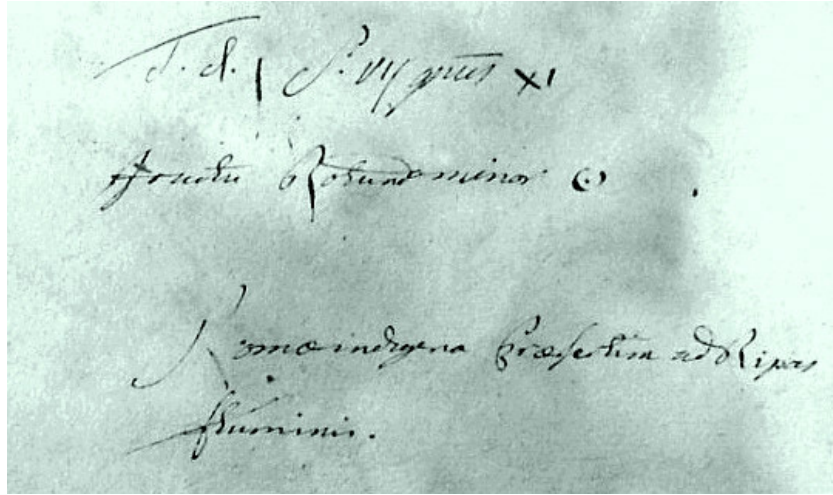 T. cl. | S. VII gnũs XI
fructu Rotund minor
Romæ indigena præsertim ad Ripas
fluminis.